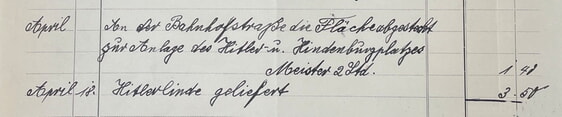 April An der Bahnhofstraße die Fläche abgesteckt
zur Anlage des Hitler- u. Hindenburgplatzes
Meister 2 Std. 1 48
April 18. Hitlerlinde geliefert 3.50